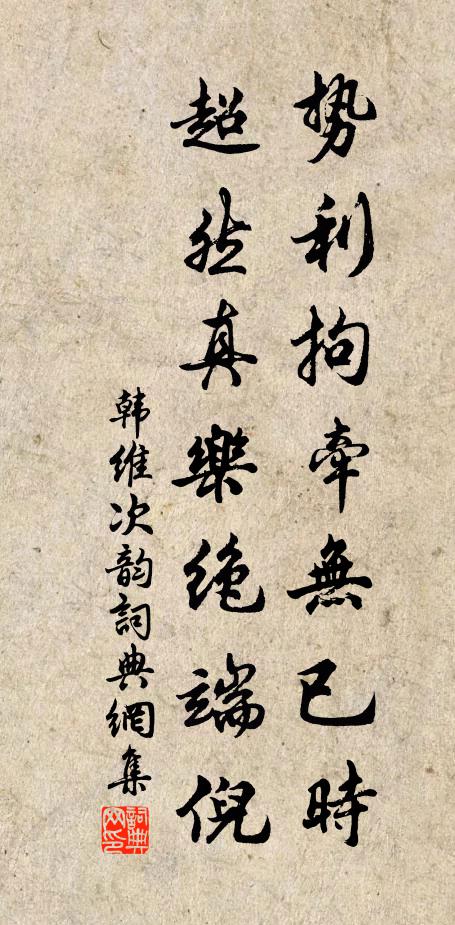 势利拘牽無已時
超然真樂绝端倪
韩維次韵詞典網集
詞典網印